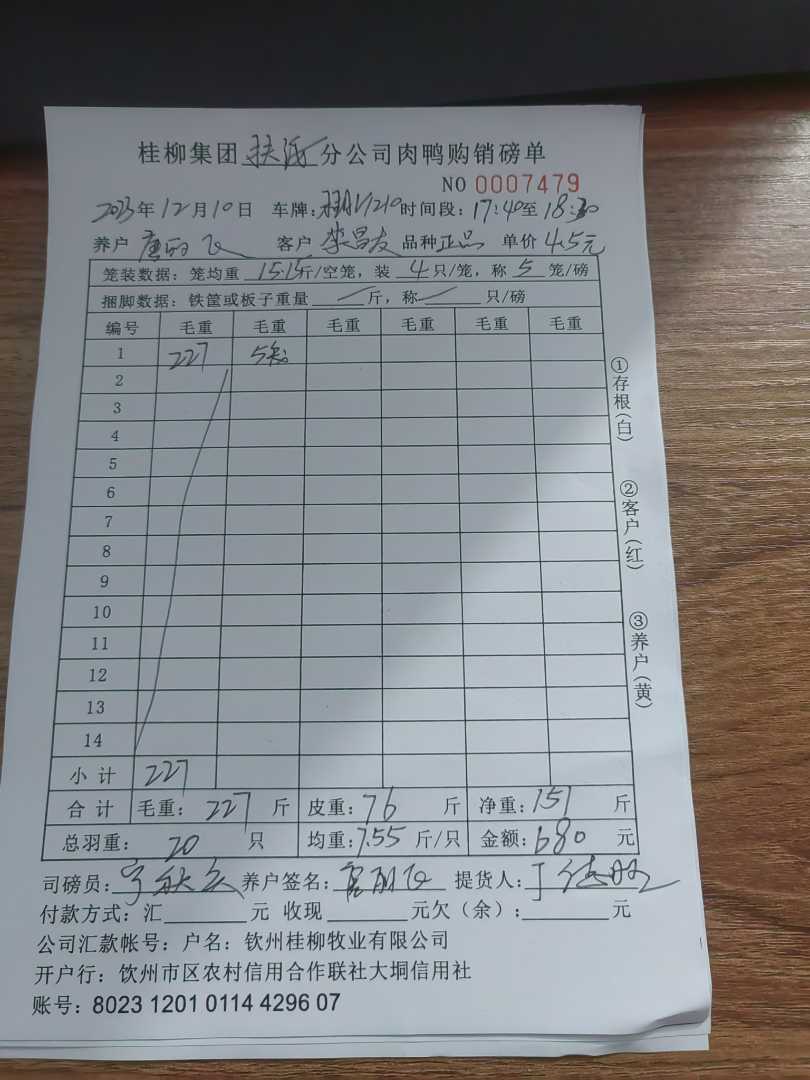 桂柳集团 分公司肉鸭购销磅单
NO 0007479
2023年12月10日 车牌: 时间段:17:40至18:30
养户 唐 飞 客户 李昌友 品种正品 单价4.5元
笼装数据:笼均重 15.15斤/空笼,装 4只/笼,称 5 笼/磅
捆脚数据:铁筐或板子重量 斤,称 只/磅
编号 毛重 毛重 毛重 毛重 毛重 毛重
1 227 5
2
3
4
5
6
7
8
9
10
11
12
13
14
小计 227
合计 毛重: 227 斤 皮重: 76 斤 净重: 151 斤
总羽重: 20 只 均重: 7.55 斤/只 金额: 680 元
司磅员: 养户签名: 提货人:
付款方式:汇 元 收现 元欠(余): 元
公司汇款帐号:户名:钦州桂柳牧业有限公司
开户行:饮州市区农村信用合作联社大垌信用社
账号:8023 1201 0114 4296 07
①存根(白)
②客户(红)
③养户(黄)